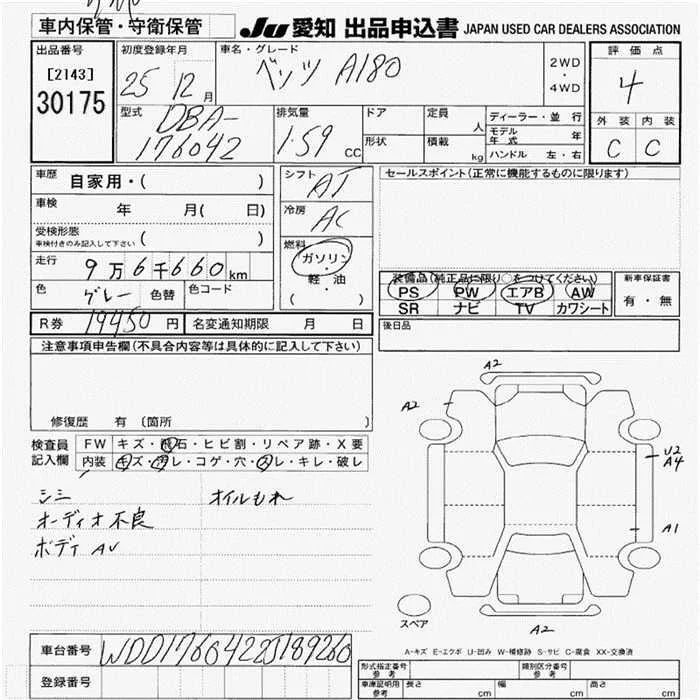 車内保管・守衛保管
JU 愛知 出品申込書 JAPAN USED CAR DEALERS ASSOCIATION
出品番号
[2143]
30175
初度登録年月
25 12月
車名・グレード
ベンツ A180
2WD
・
4WD
評価点
4
外装 内装
C C
型式
DBA-
176042
排気量
1.59 cc
ドア
定員
人
形状
積載
kg
ディーラー・並行
モデル年式 年
ハンドル 左・右
車歴 自家用・( )
車検 年 月( 日)
受検形態
車検付きのみ記入して下さい ( )
走行 9万6千660km
色 グレー 色替 色コード
R券 19450円 名変通知期限 月 日
シフト
AT
冷房
AC
燃料
ガソリン
・
軽・油
( )
セールスポイント(正常に機能するものに限ります)
装備品(純正品に限り○をつけてください)
PS PW エアB AW
SR ナビ TV カワシート
新車保証書
有・無
後日品
注意事項申告欄(不具合内容等は具体的に記入して下さい)
修復歴 有 〔箇所 〕
検査員
記入欄
FW キズ・飛石・ヒビ割・リペア跡・X要
内装 キズ・汚レ・コゲ・穴・スレ・キレ・破レ
シミ オイルもれ
オーディオ不良
ボディ AU
A2
A2
U2
A4
A1
A2
スペア
A-キズ E-エクボ U-凹み W-補修跡 S-サビ C-腐食 XX-交換済
車台番号 WDD1760422J189260
登録番号
形式指定番号
参考
類別区分番号
参考
車庫証明用
参考
長さ cm 幅 cm 高さ cm